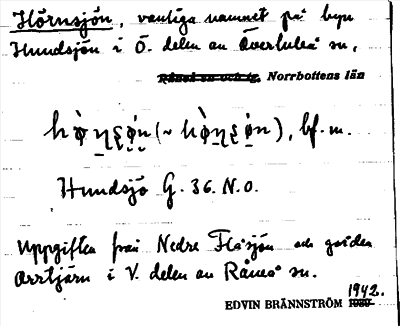 Hörnsjön, vanliga namnet på byn
Hundsjön i Ö. delen av Överluleå sn,
Råneå sn och tg, Norrbottens län
bf. m.
Hundsjö G. 36. N.O.
Uppgiften från Nedre Flåsjön och gården
Orrtjärn i V. delen av Råneå sn.
1942.
EDVIN BRÄNNSTRÖM 1939